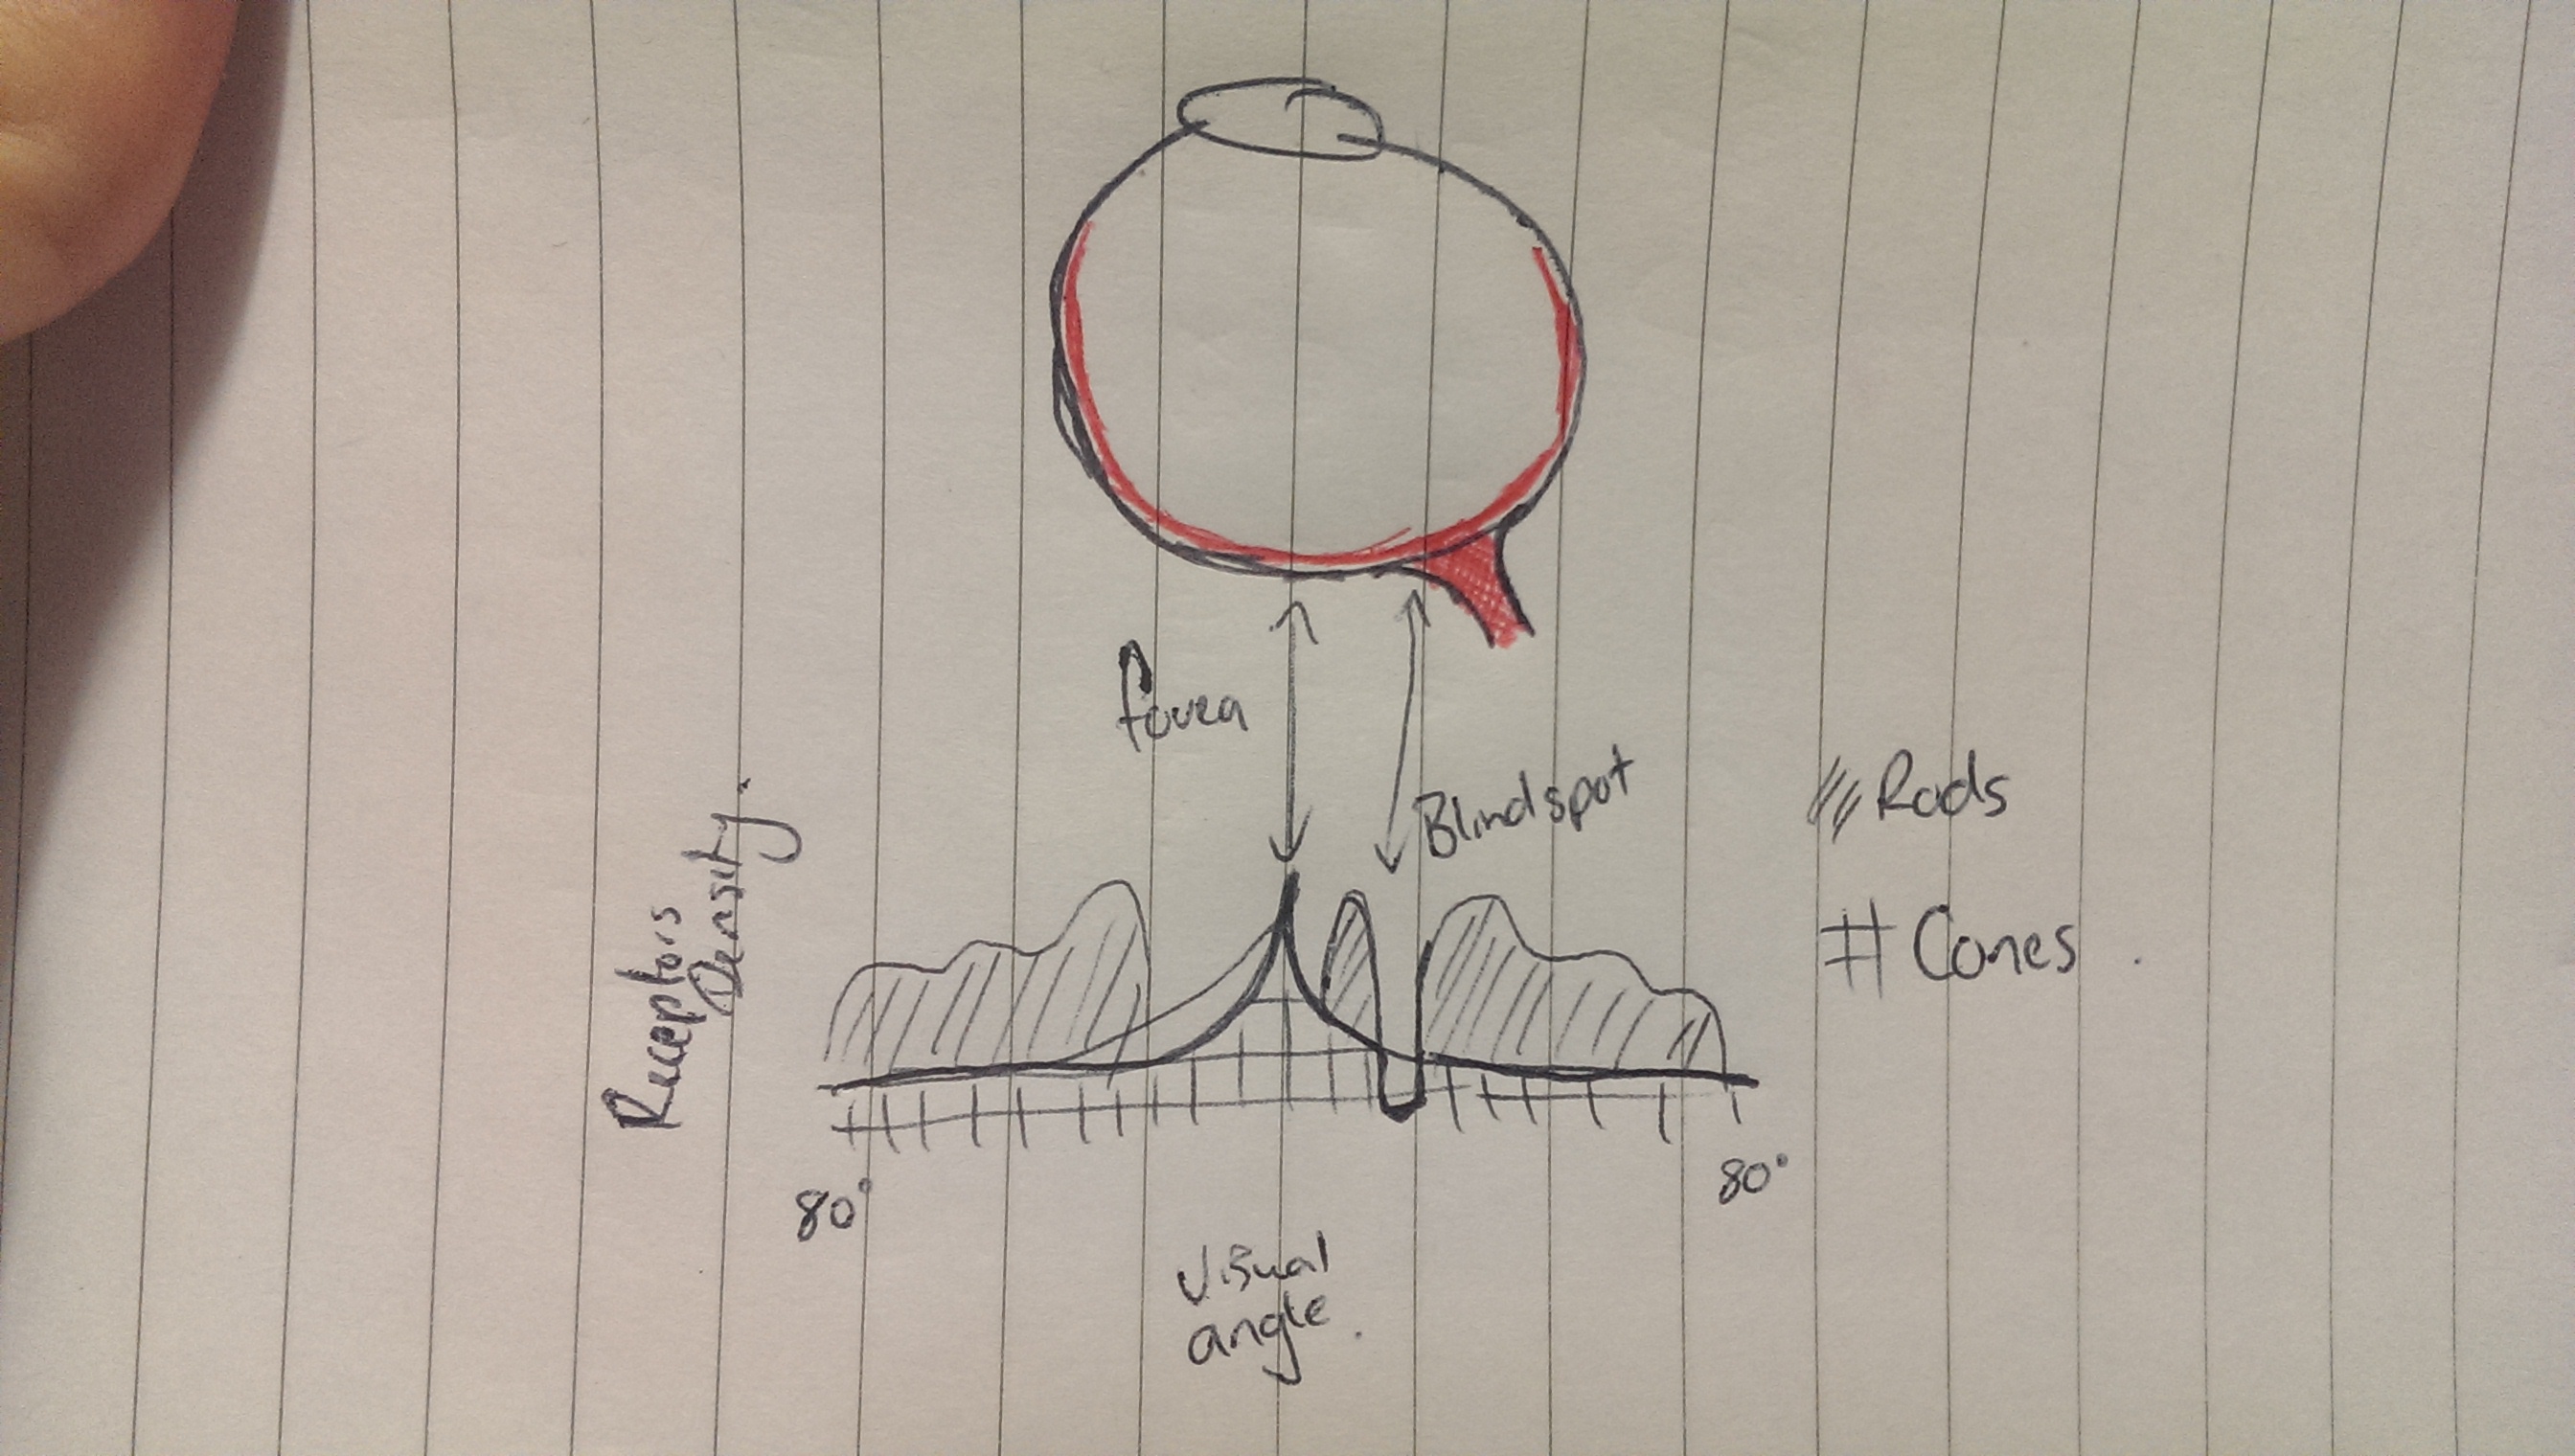 fovea
Blindspot
Rods
Cones .
Receptors
Density.
80°
80°
visual
angle.